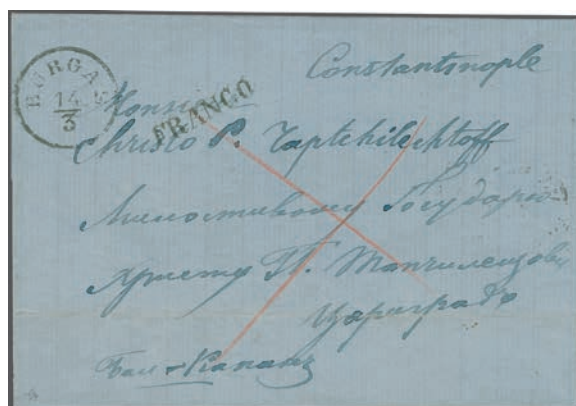 BURGAS
14
3
FRANCO
Constantinople
Monsieur
Christo P. Taptchilechtoff
Милостивому Государю
Христу П. Тапчилещову
Цариградъ
Балъ Капанъ